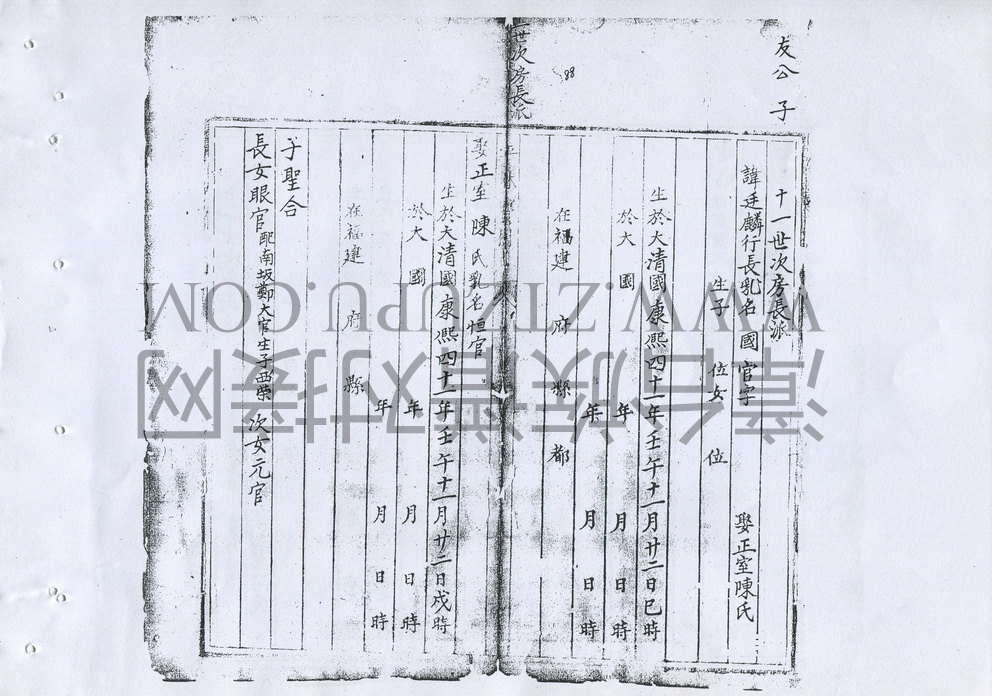 友公 子
十一世次房長派
諱廷麟行長乳名 國 官字 娶正室陳氏
生子 位女 位
生於大清國康熙四十一年壬午十一月廿二日巳時
於大 國 年 月 日 時
年 月 日 時
在福建 府 縣 都
世次房長派
88
娶正室 陳 氏乳名 恒官
生於大清國康熙四十一年壬午十一月廿二日戌時
於大 國 年 月 日 時
年 月 日 時
在福建 府 縣
子聖合
長女眼官配南坂鄭大官生子西榮 次女元官
WWW.ZTZUPU.COM
漳台族谱对接网